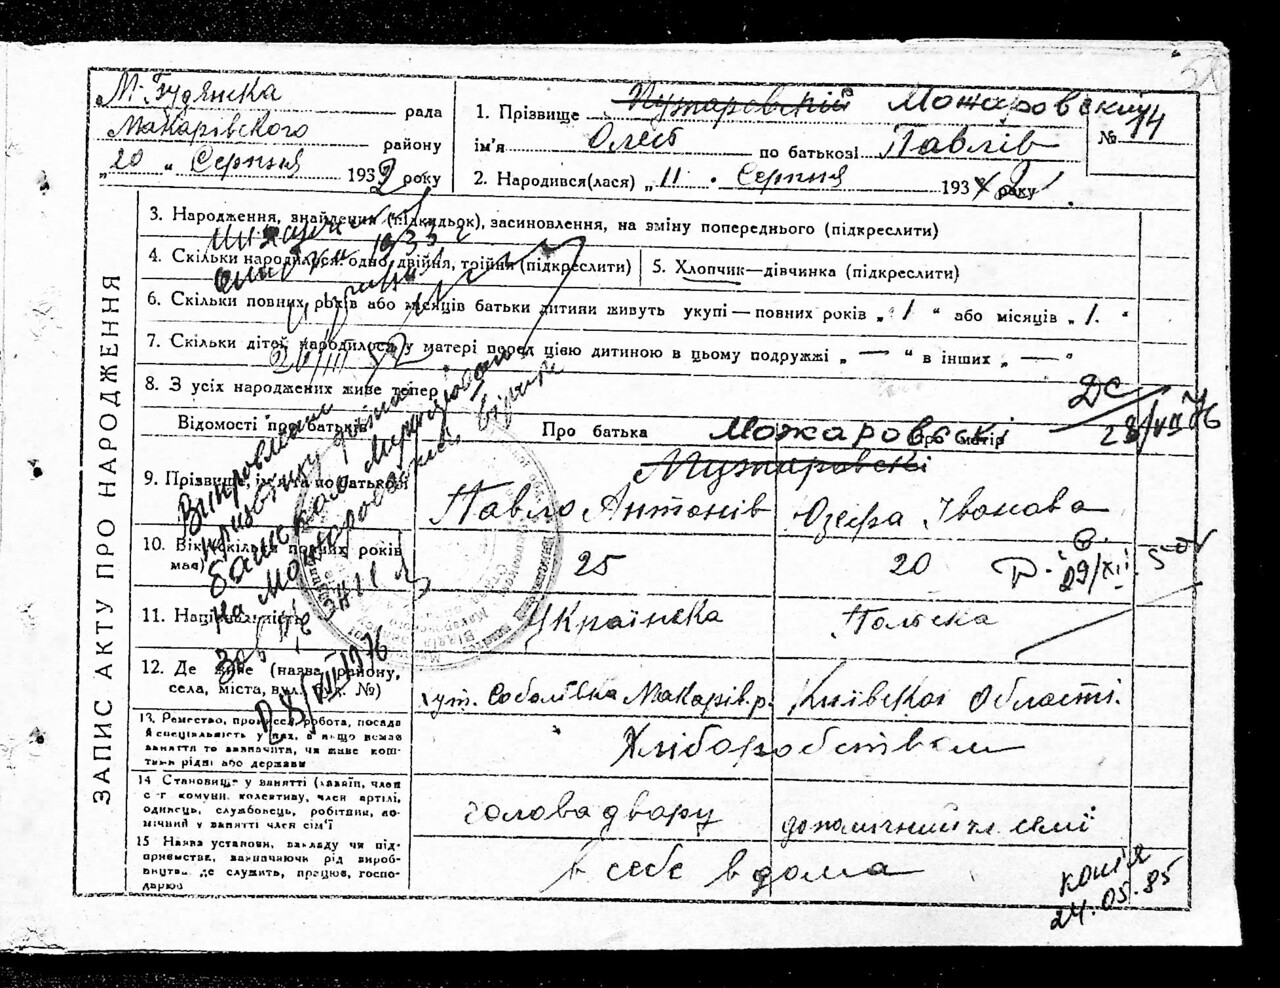 М-Будянска рада
Макарівского району
„20 „ Серпня 1932 року
1. Прізвище Пужаровский Можаровский
№ 14
ім'я Олест по батькові Павлів
2. Народився(лася) „11. Серпня 193 року
ЗАПИС АКТУ ПРО НАРОДЖЕННЯ
3. Народження, знайдення (підкидьок), засиновлення, на зміну попереднього (підкреслити)
4. Скільки народилося: одно, двійня, трійня (підкреслити)
5. Хлопчик—дівчинка (підкреслити)
6. Скільки повних років або місяців батьки дитини живуть укупі—повних років „ 1 “ або місяців „ 1. “
7. Скільки дітей народилося у матері перед цією дитиною в цьому подружжі „ — “ в інших „ — “
8. З усіх народжених живе тепер
ДС
28/VII 76
Відомості про батьків
Про батька
Можаровскі
Про матір
Пужаровскі
9. Прізвище, ім'я та по батькові
Павло Антонів
Озефа Іванова
10. Вік (скільки повних років має)
25
20
09/XII
11. Національність
Українска
Полска
12. Де живе (назва району, села, міста, вул., буд. №)
хут. Соболівка Макарів. р.
Київскої Області.
13. Ремество, професія, робота, посада й спеціальність у них, а якщо немає заняття то зазначити, чи живе коштами рідні або держави
Хліборобством
14 Становище у занятті (хазяїн, член с-г комуни, колективу, член артілі, одинець, службовець, робітник, помічний у занятті член сім'ї
голова двору
допомічний чл. семї
15 Назва установи, закладу чи підприємства, зазначаючи рід виробництва де служить, працює, господарює
в себе вдома
Виправлено
прізвище
батьків
на Можаровский
28/VII 1976
копія
24.05.85